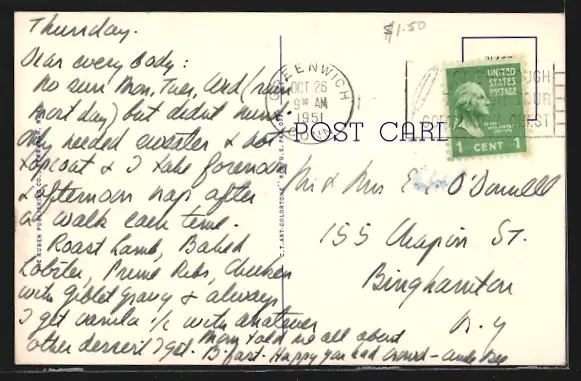 Thursday.
$1.50
Dear every body:
No sun Mon, Tues, Wed (rain
most day) but didn't mind.
Only needed sweater & not
topcoat & I take forenoon
& afternoon nap after
a walk each time.
Roast Lamb, Baked
Lobster, Prime Ribs, Chicken
with giblet gravy & always
I get vanilla i/c with whatever
other dessert I get. Mom told me all about
B. fast. Happy you had crowd -
GREENWICH
OCT 26
9 30 AM
1951
CONN.
UNITED
STATES
POSTAGE
1 CENT 1
POST CARD
Mr & Mrs E O'Donnell
155 Chapin St.
Binghamton
N.Y
RUBEN PUBLISHING CO.
C.T. ART-COLORTONE